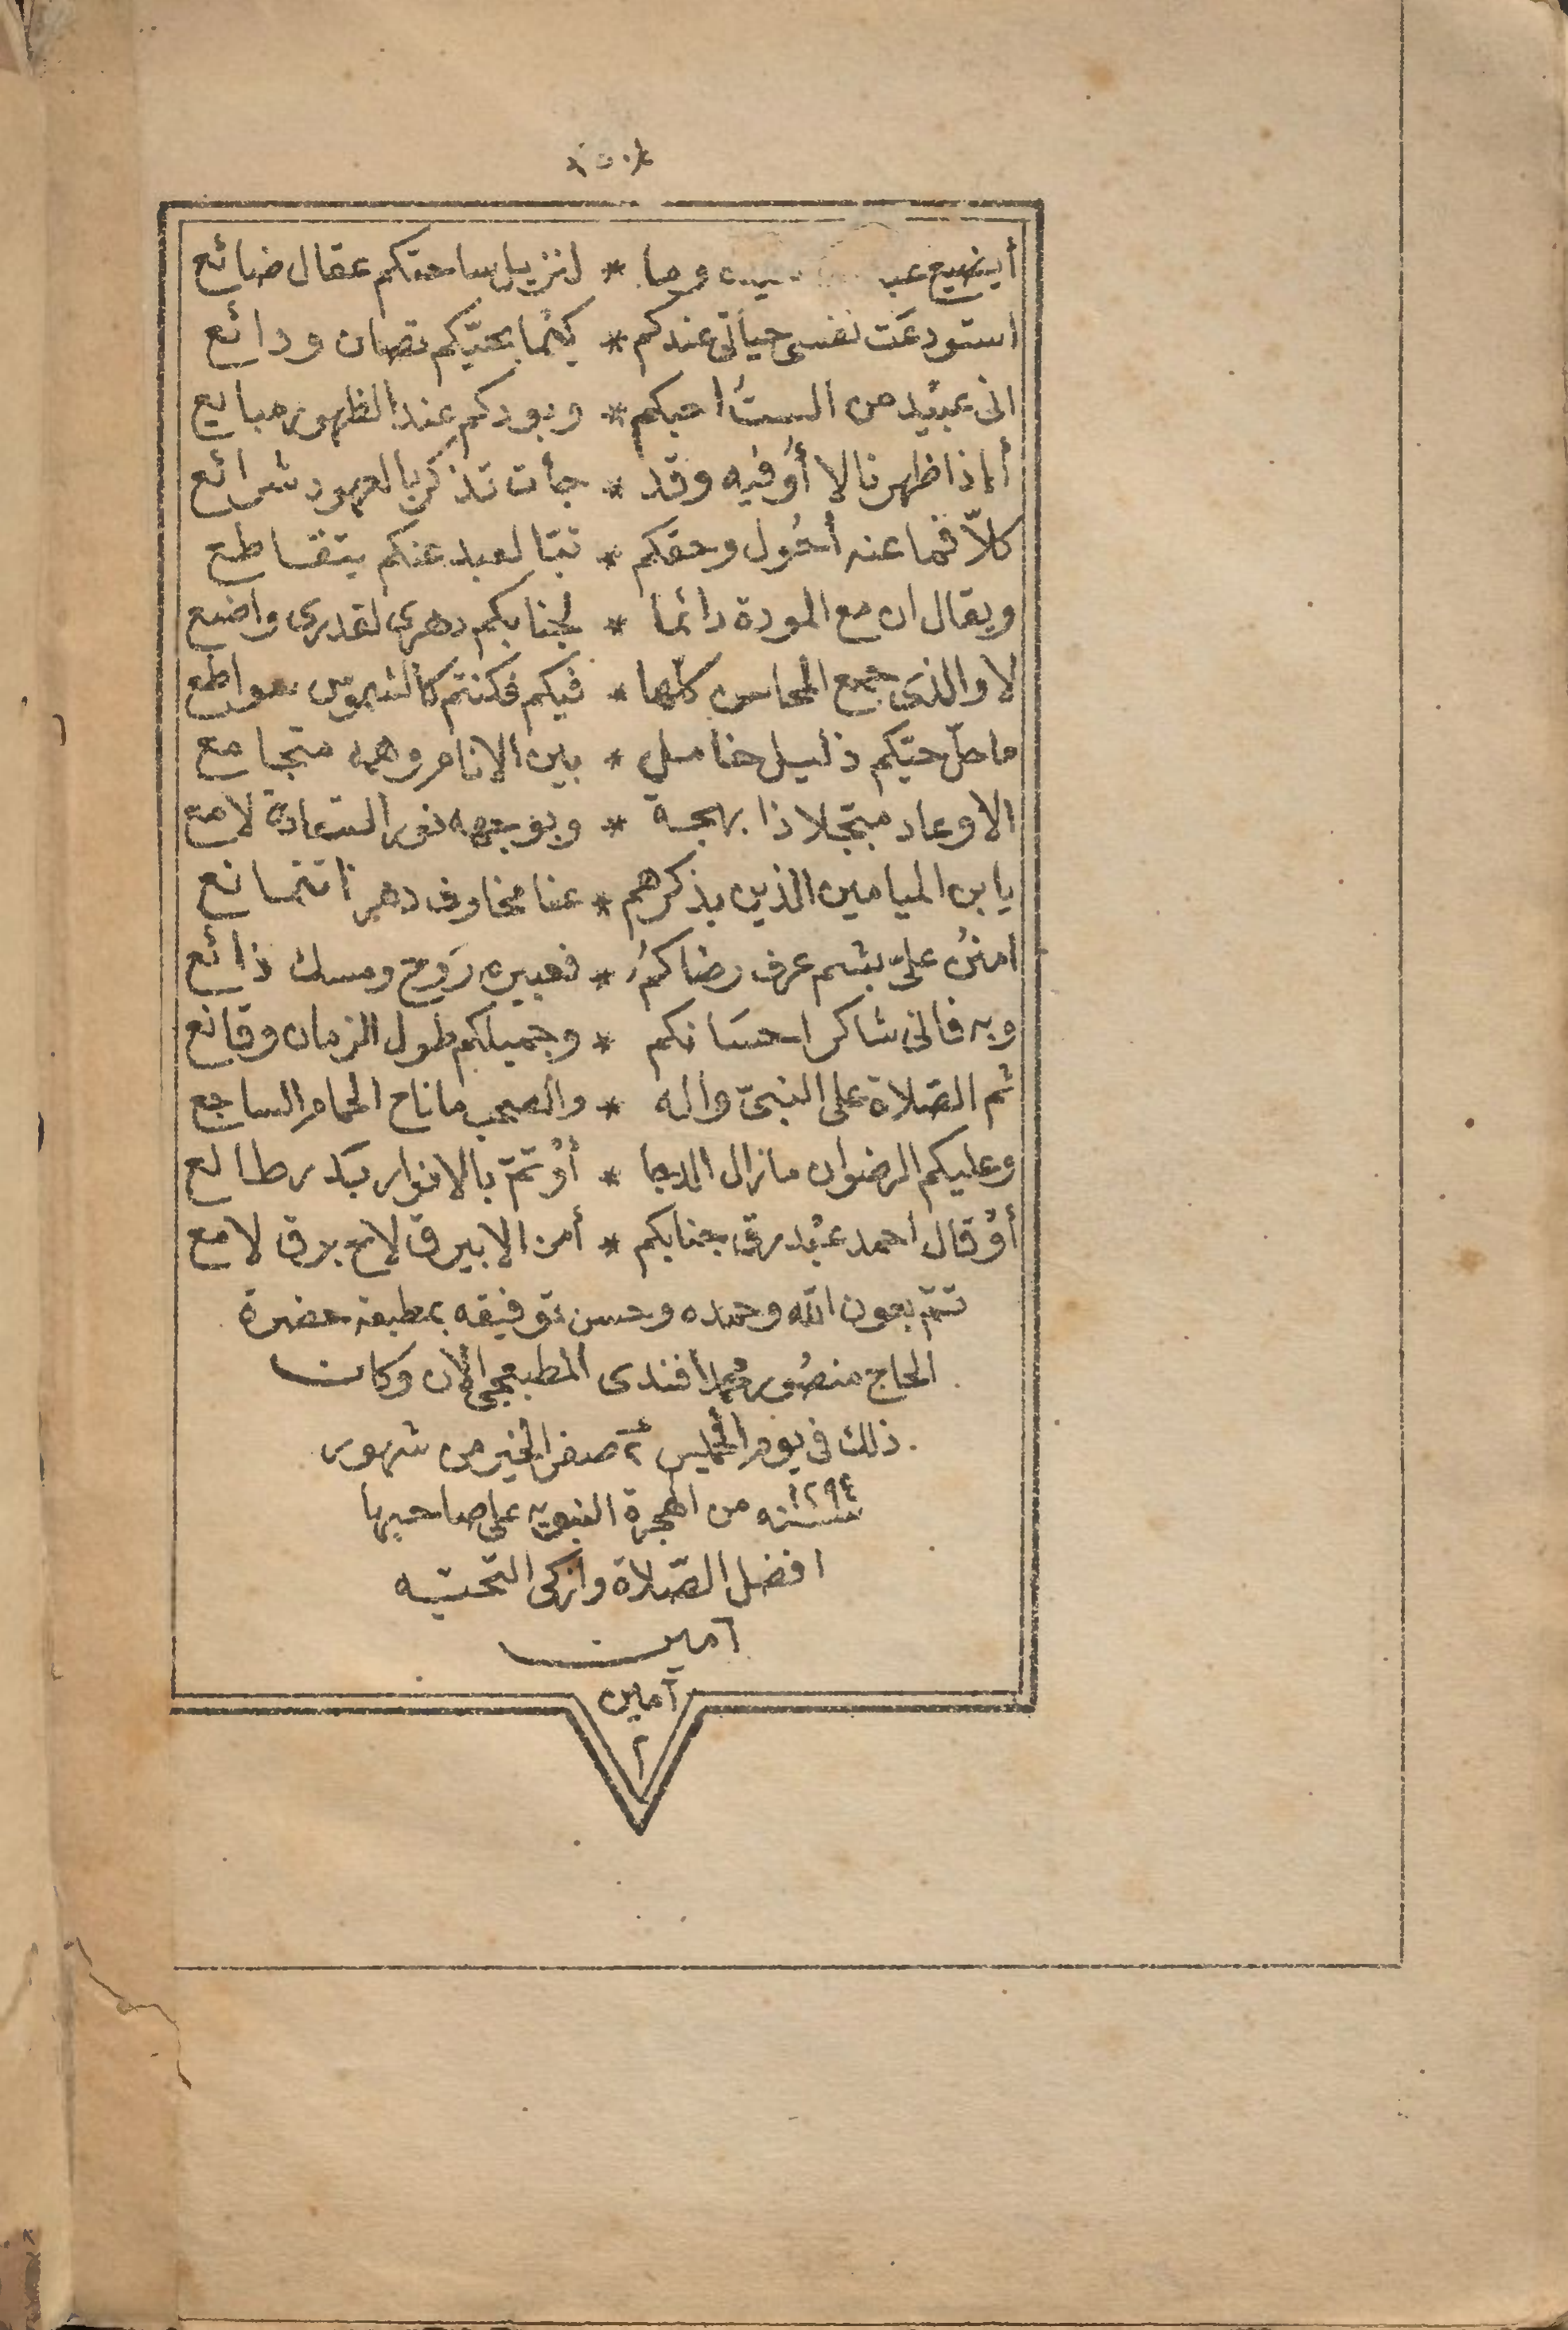 أيضيع عبد وما * لنزيل ساحتكم عقال ضائع
استودعَت نفسى حياتى عندكم * كيما بحيّكم تصان ودائع
انى عبَيد من الستُ احبكم * وبودكم عند الظهور مبايع
أاذا ظهرنا لا أوُفيه وقد * جأت تذكر بالعهود شرائع
كلاّ فما عنه أحُول وحقكم * تبّا لعبد عنكم يتقاطع
ويقال ان مع المودة دائما * لجنابكم دهرى لقدرى واضع
لا والذى جمع المحاسن كلّها * فيكم فكنتم كالشموس سواطع
ما حلّ حيّكم ذليل خامل * بين الانام وهمه متجامع
الا وعاد مبتجلا ذا بهجة * وبوجهه نور السّعادة لامع
يا بن الميامين الذين بذكرهم * عنا مخاوف دهرنا تتمانع
امننُ علىّ بشم عرف رضاكمُ * فعبيره رَوح ومسك ذائع
وبه فانى شاكر احسَانكم * وجميلكم طول الزمان وقانع
ثم الصّلاة على النبىّ واله * والصحب ما ناح الحمام الساجع
وعليكم الرضوان ما زال الدجا * أوْ تمّ بالانوار بَدر طالع
أوْ قال احمد عبْد رق جنابكم * أمن الابيرق لاح برق لامع
تمّ بعون الله وحمده وحسن توفيقه بمطبعة حضرة
الحاج منصُور محمد أفندى المطبعجى الآن وكان
ذلك فى يوم الخميس ٢٤ صفر الخير من شهور
سنة ١٢٩٤ من الهجرة النبويه على صاحبها
افضل الصّلاة وازكى التحيّه
آمين
آمين
٢